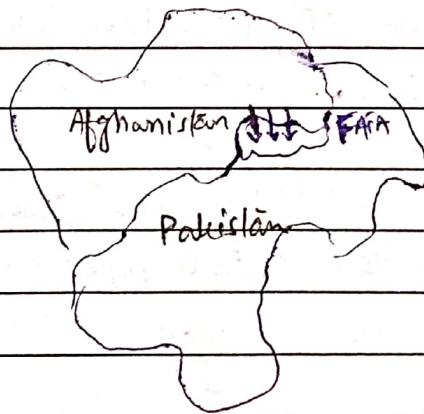 Afghanistan FATA
Pakistan